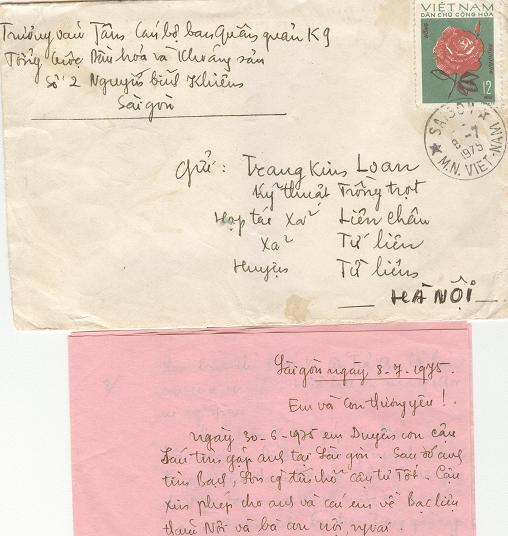 Trương văn Tâm Cán bộ ban Quân quản K9
Tổng cục Dầu hỏa và Khoáng sản
Số 2 Nguyễn bỉnh Khiêm
Sài gòn
VIỆT NAM
DÂN CHỦ CỘNG HÒA
12
SAIGON
8-7
1975
M.N. VIET-NAM
Gửi: Trang Kim Loan
Kỹ thuật Trồng trọt
Hợp tác Xã Liên Châu
Xã Tứ liên
Huyện Từ liêm
HÀ NỘI
Sài gòn ngày 8.7.1975.
Em và Con thương yêu!
Ngày 30-6-1975 em Duyên con cậu
Sáu tìm gặp anh tại Sài gòn. Sau đó anh
tìm Bạch, Sơn cả đến chở cậu tư Tốt. Cậu
xin phép cho anh và các em về Bạc liêu
thăm Nội và bà con nội, ngoại.